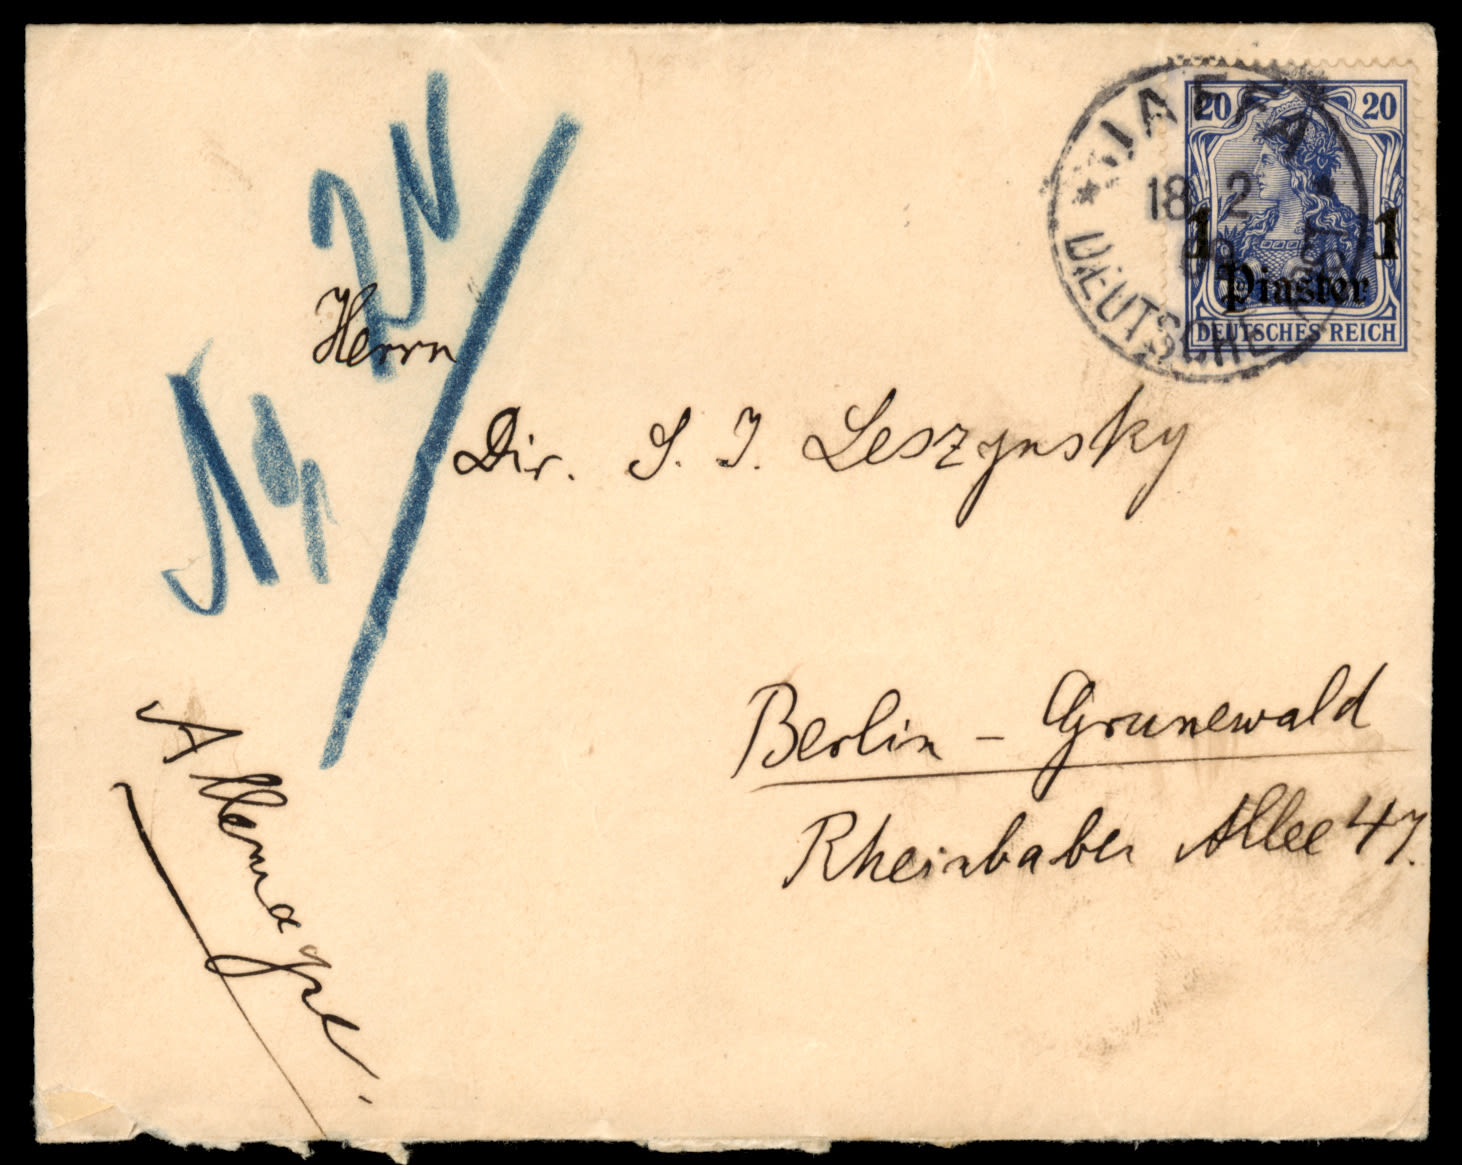 20 20
1 1
Piaster
DEUTSCHES REICH
JAFFA
18 2
DEUTSCHE POST
Herrn
Dir. S. J. Leszynsky
Berlin - Grunewald
Rheinbaben Allee 47.
Allemagne.